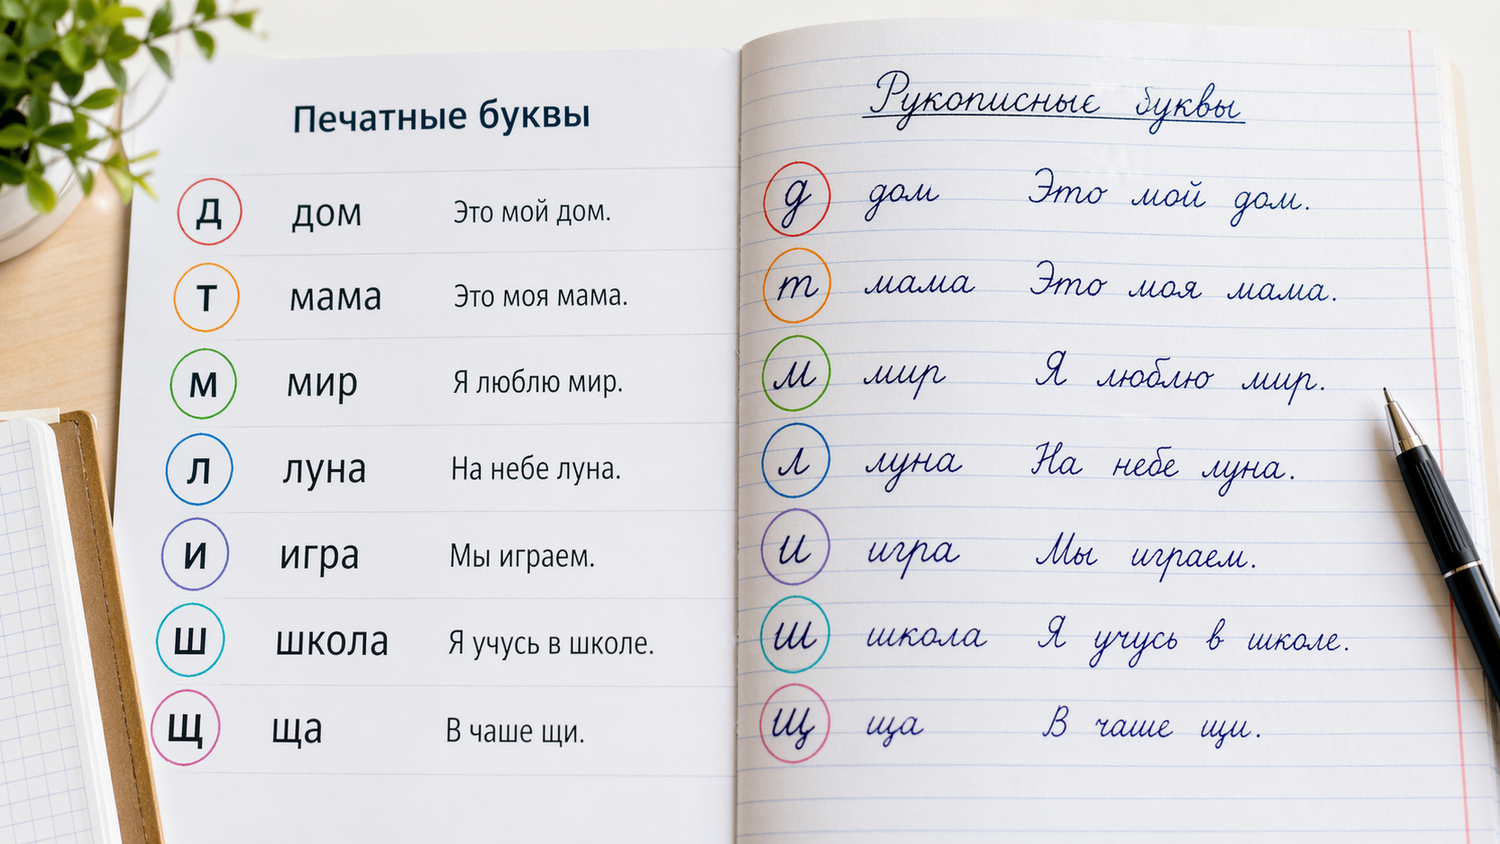 Печатные буквы
д дом Это мой дом.
т мама Это моя мама.
м мир Я люблю мир.
л луна На небе луна.
и игра Мы играем.
ш школа Я учусь в школе.
щ ща В чаше щи.
Рукописные буквы
д дом Это мой дом.
т мама Это моя мама.
м мир Я люблю мир.
л луна На небе луна.
и игра Мы играем.
ш школа Я учусь в школе.
щ ща В чаше щи.